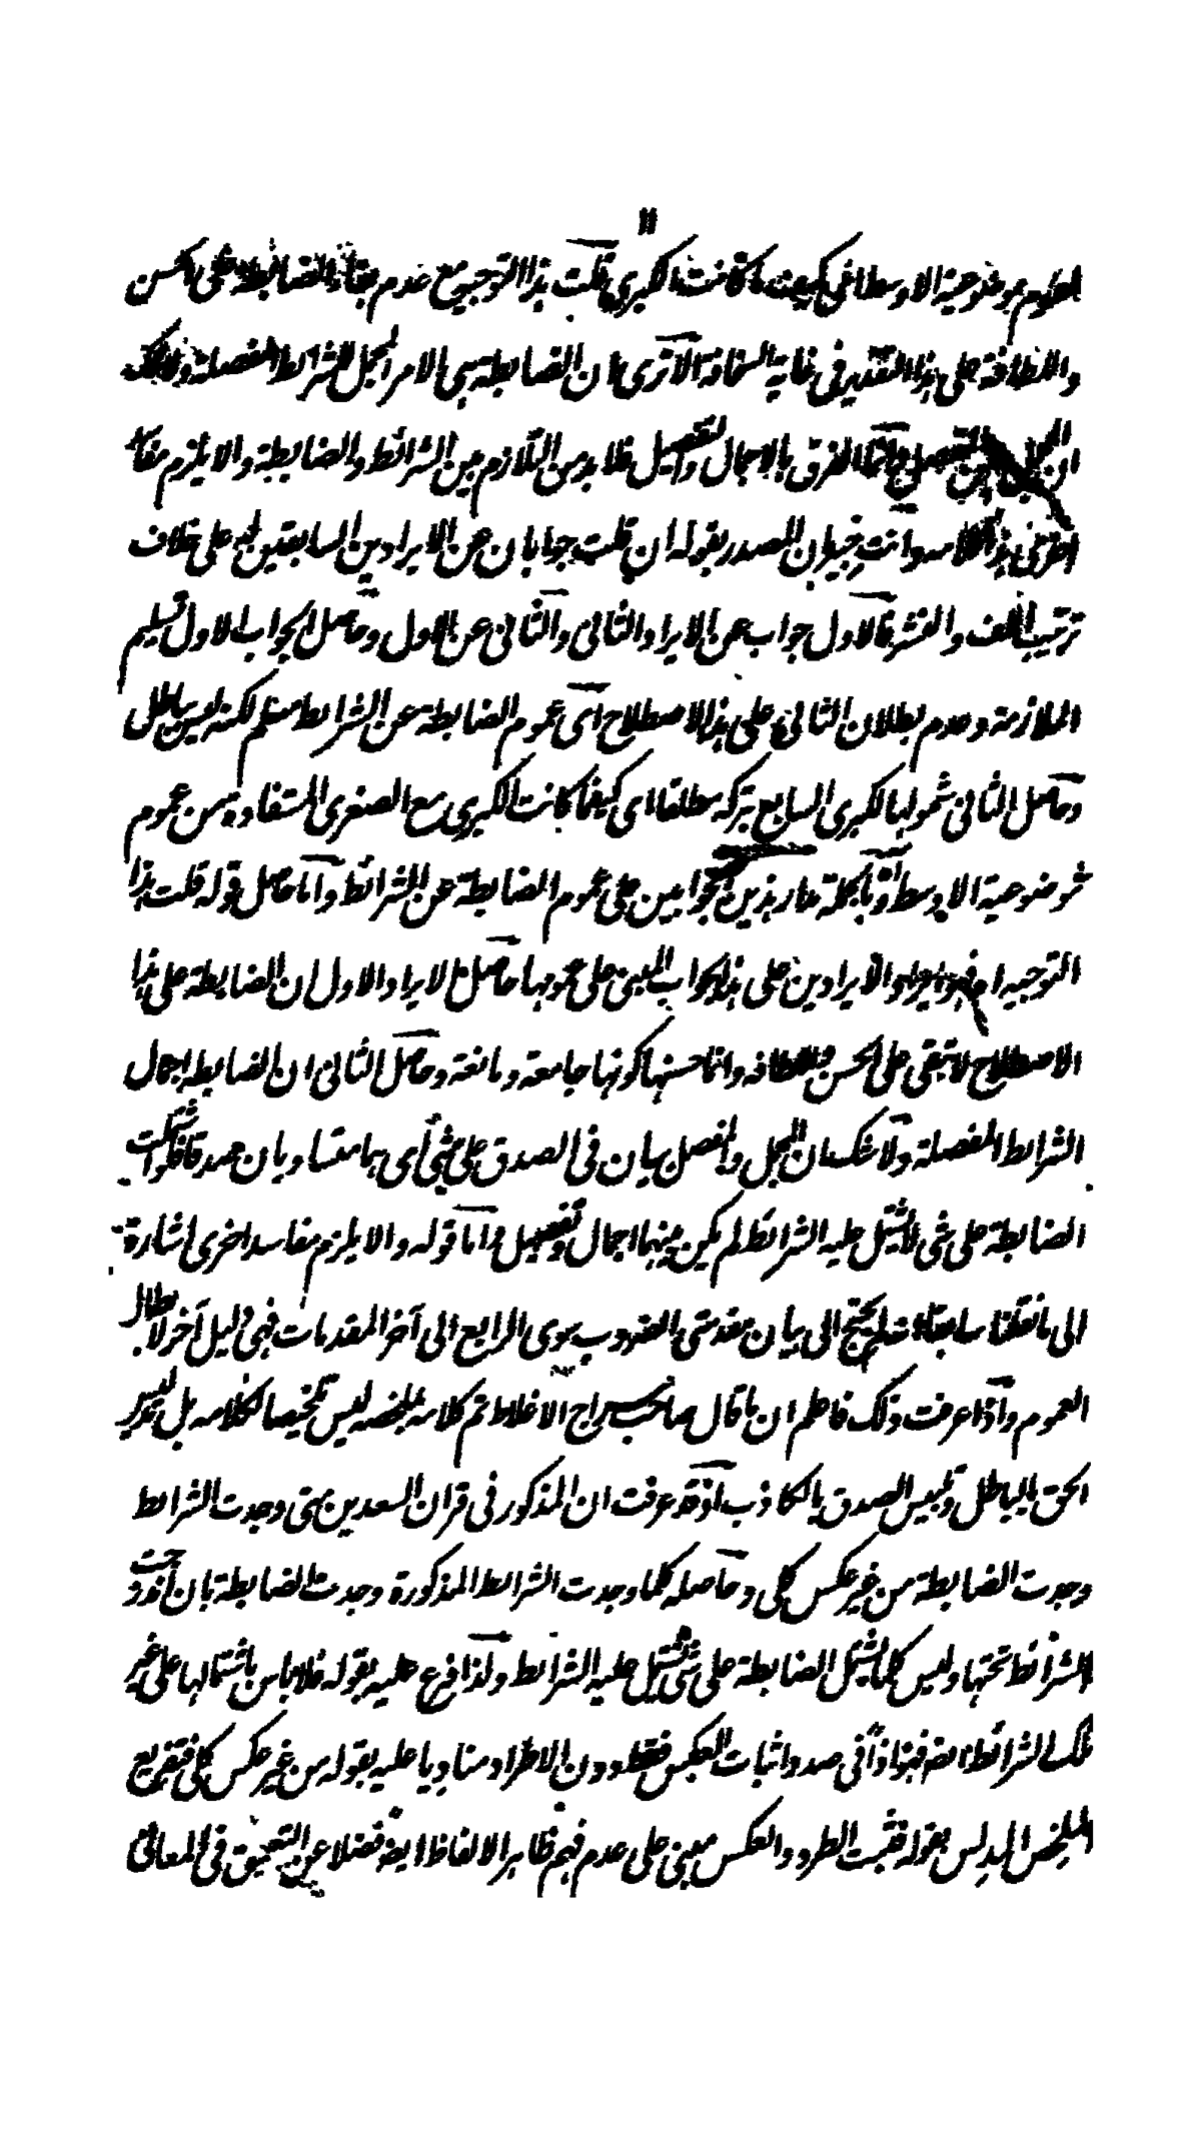 ١١
لعموم موضوعية الاوسط اعنى كيف ما كانت الكبرى قلت هذا التوجيه مع عدم بقاء الضابطة على الحسن
واللطافة على هذا التقدير فى غاية السخافة الا ترى ان الضابطة هى الامر المجمل للشرائط المفصلة ولا شك
ان المجمل عين التفصيل وانما الفرق بالاجمال والتفصيل فلا بد من التلازم بين الشرائط والضابطة والا يلزم مفاسد
اخرى هذا كلامه وانت خبير بان المصدر بقوله ان قلت جوابان عن الايرادين السابقين لكن على خلاف
ترتيب اللف والنشر فالاول جواب عن الايراد الثانى والثانى عن الاول وحاصل الجواب الاول تسليم
الملازمة وعدم بطلان الثانى على هذا الاصطلاح اى عموم الضابطة عن الشرائط مسلم لكنه ليس بباطل
وحاصل الثانى شمولها لكبرى السابع بتركه مطلقا اى كيفما كانت الكبرى مع الصغرى المستفادة من عموم
موضوعية الاوسط وبالجملة مدار هذين الجوابين على عموم الضابطة عن الشرائط واما حاصل قوله قلت هذا
التوجيه اه فهو ايراد الايرادين على هذا الجواب المبنى على عمومها حاصل الايراد الاول ان الضابطة على هذا
الاصطلاح لا تبقى على الحسن واللطافة وانما حسنها كونها جامعة ومانعة وحاصل الثانى ان الضابطة اجمال
الشرائط المفصلة ولا شك ان المجمل والمفصل سيان فى الصدق على شئ اى هما متساويان صدقا فلو اشتملت
الضابطة على شئ لا يشتمل عليه الشرائط لم يكن بينهما اجمال وتفصيل واما قوله والا يلزم مفاسد اخرى اشارة
الى ما نقلنا سابقا فلم يحتج الى بيان مقدمتى الضروب سوى الرابع الى آخر المقدمات فهى دليل آخر لابطال
العموم واذا عرفت ذلك فاعلم ان ما قال صاحب سراج الاغلاط تم كلامه بملخصه ليس تلخيصا لكلامه بل تلبيس
الحق بالباطل وتلبيس الصدق بالكاذب اذ قد عرفت ان المذكور فى قران السعدين متى وجدت الشرائط
وجدت الضابطة من غير عكس كلى وحاصله كلما وجدت الشرائط المذكورة وجدت الضابطة بان اندرجت
الشرائط تحتها وليس كلما يشتمل الضابطة على شئ يشتمل عليه الشرائط ولذا فرع عليه بقوله فلا باس باشتمالها على غير
تلك الشرائط ايضا فهو اذا فى صدد اثبات العكس فقط دون الاطراد مناديا عليه بقوله من غير عكس كلى فتفريع
الملخص المدلس بقوله فثبت الطرد والعكس مبنى على عدم فهم ظاهر الالفاظ ايضا فضلا عن التعمق فى المعانى